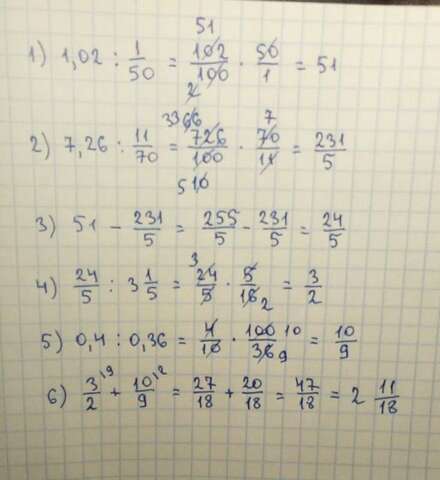 1) 1,02 : 1/50 = 102/100 · 50/1 = 51
51
2
2) 7,26 : 11/70 = 726/100 · 70/11 = 231/5
33 66 7
5 10
3) 51 - 231/5 = 255/5 - 231/5 = 24/5
4) 24/5 : 3 1/5 = 24/5 · 5/16 = 3/2
3 2
5) 0,4 : 0,36 = 4/10 · 100/36 = 10/9
10
9
6) 3/2 + 10/9 = 27/18 + 20/18 = 47/18 = 2 11/18